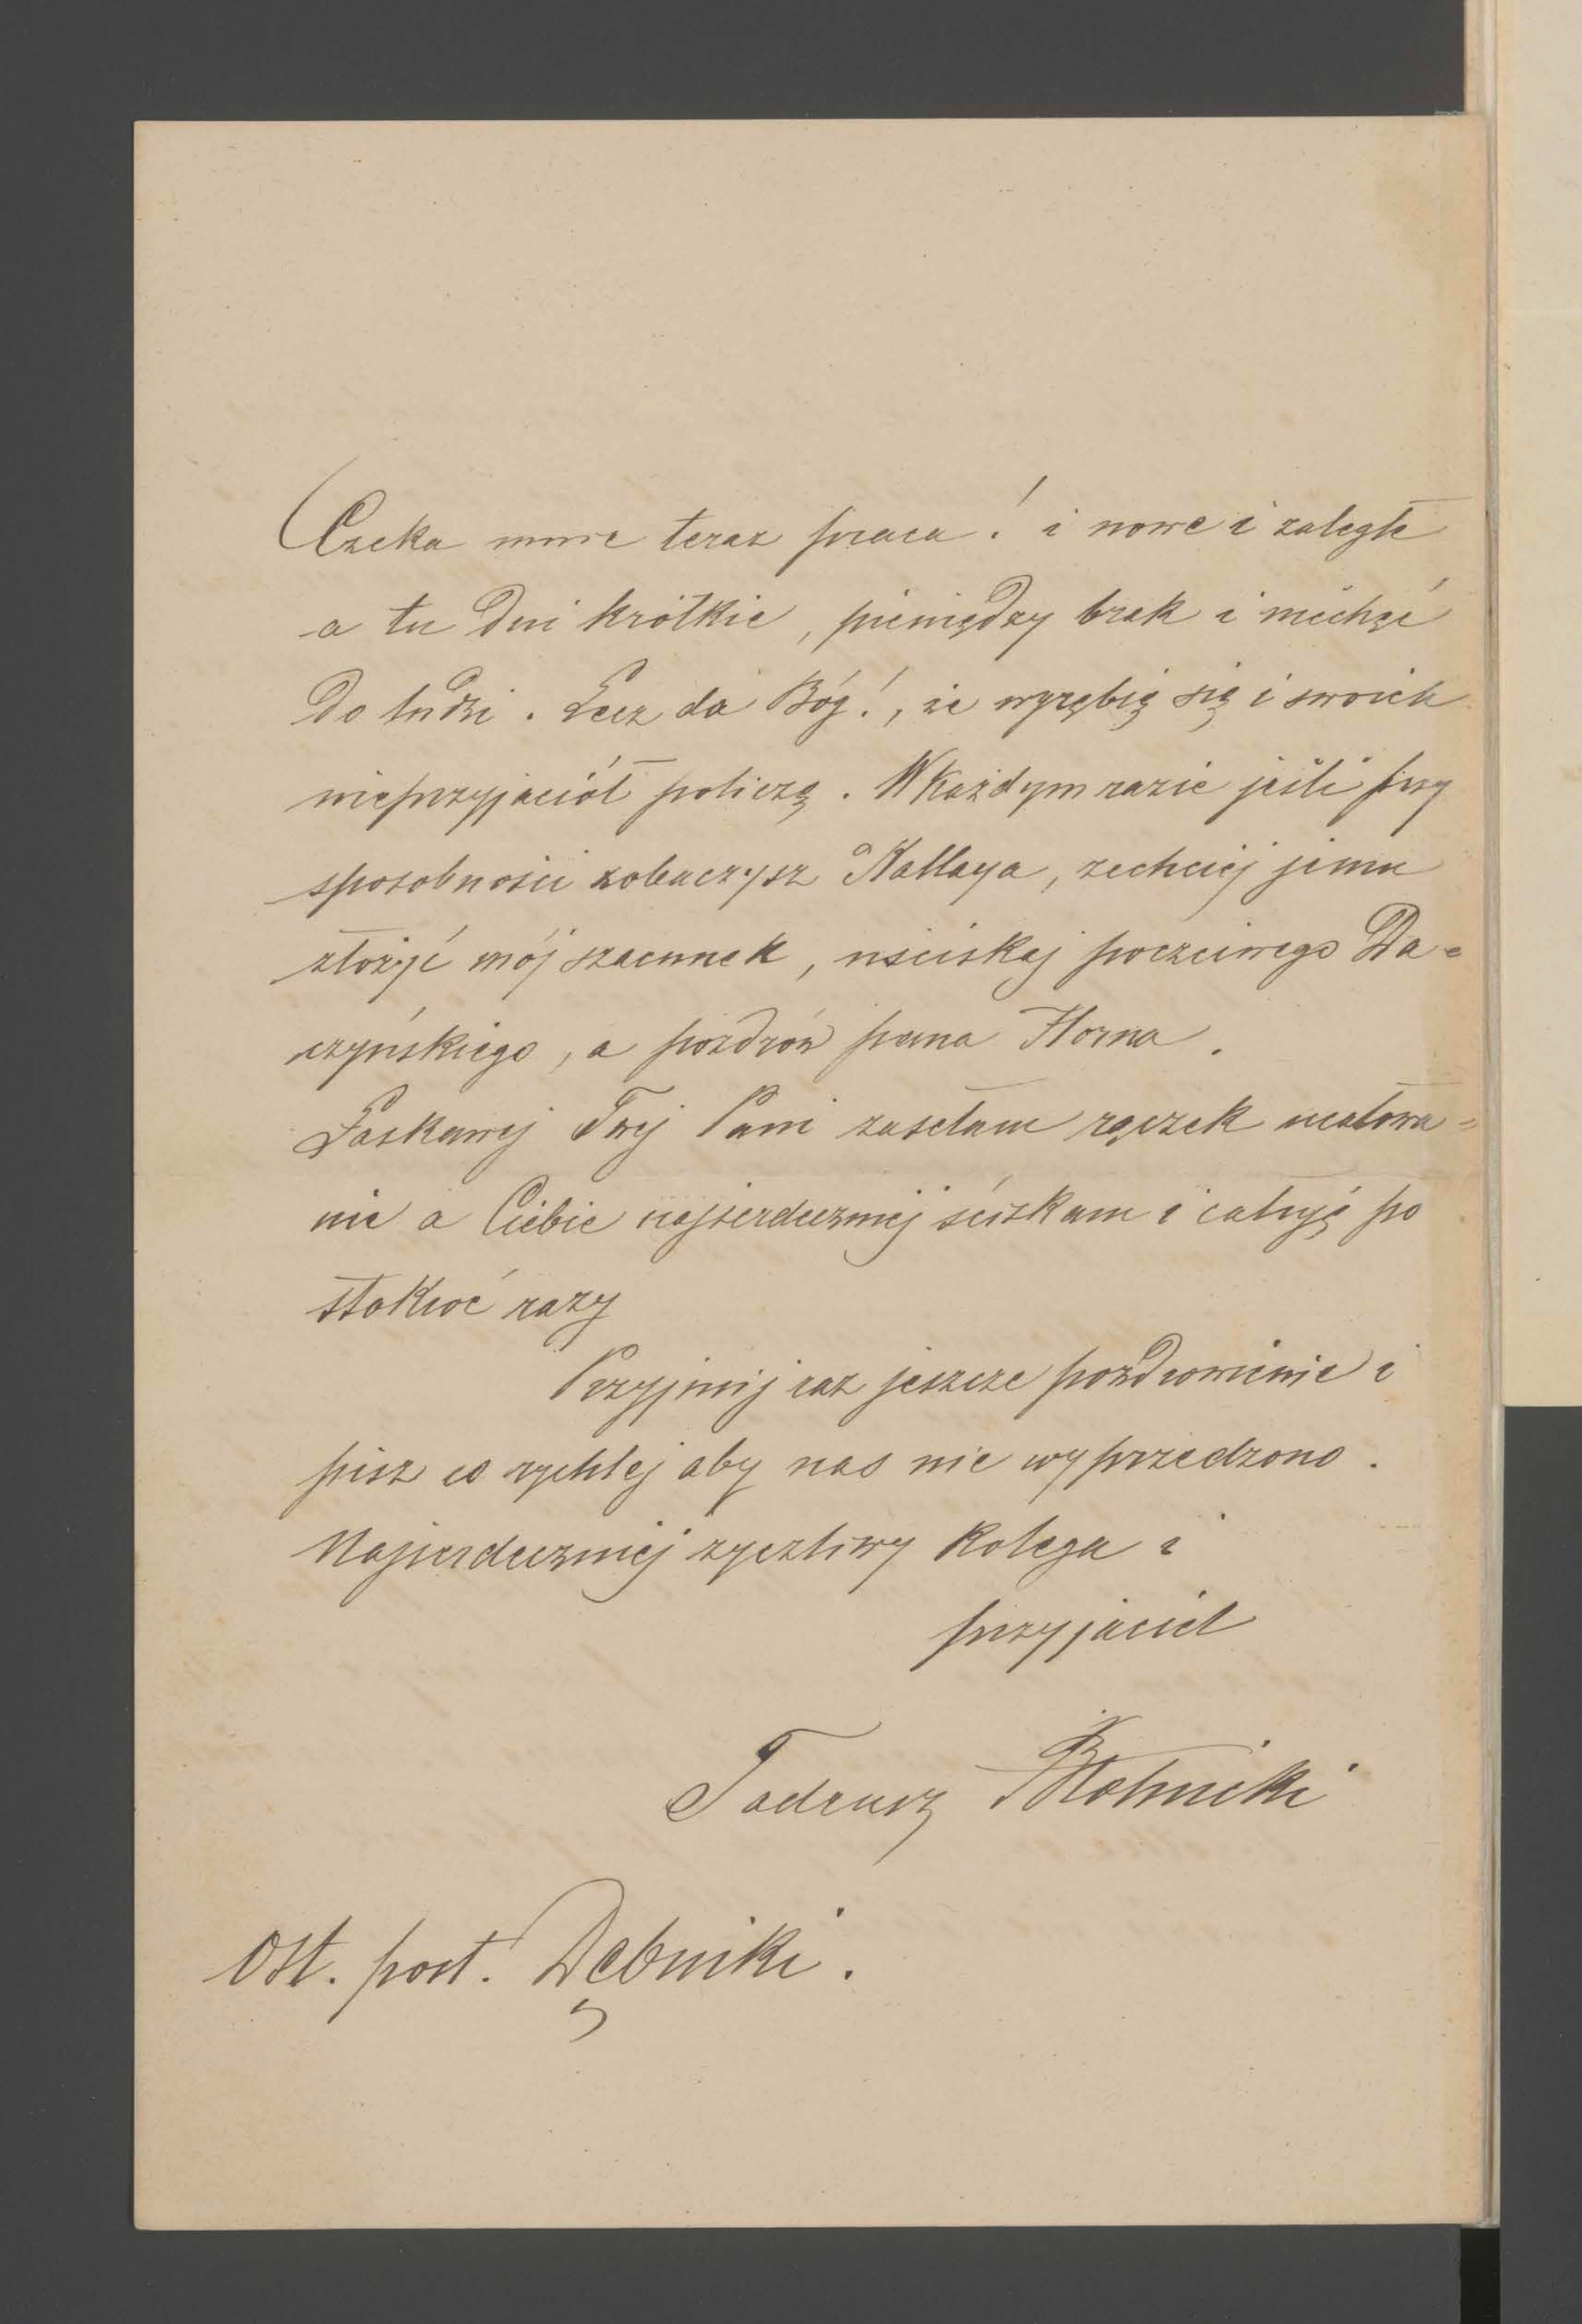 Czeka mnie teraz praca! i nowe i zaległe
a tu dni krótkie, pieniędzy brak i niechęć
do ludzi. Lecz da Bóg!, że wyrębię się i swoich
nieprzyjaciół policzę. W każdym razie jeśli przy
sposobności zobaczysz Kallaya, zechciej jemu
złożyć mój szacunek, uściskaj poczciwego Da-
czyńskiego, a pozdrów pana Horna.
Łaskawej Twej Pani zasełam rączek ucałowa=
nie a Ciebie najserdeczniej ściskam i całuję po
stokroć razy
Przyjmij raz jeszcze pozdrowienie i
pisz co rychlej aby nas nie wyprzedzono.
Najserdeczniej życzliwy kolega i
przyjaciel
Tadeusz
Ost. post. Dębniki.